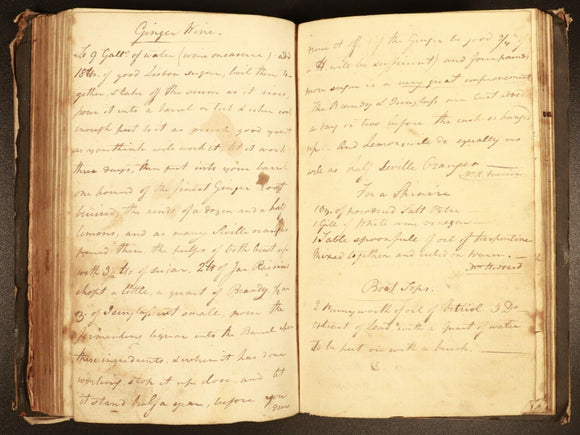 Ginger Wine.
To 9 Gall.s of water (wine measure) add
18 lb. of good Lisbon sugar, boil them to-
gether, & take off the scum as it rises,
pour it into a barrel or tub & when cool
enough put to it as much good yeast
as you think will work it, let it work
three days, then put into your barrel
one pound of the finest Ginger Root
bruised the rinds of a dozen and a half
lemons, and as many Seville oranges
pared thin, the pulps of both beat up
with 3 lbs of sugar, 2 lb of Jar Raisins
chopt a little, a quart of Brandy &
of Isinglass cut small, pour the
fermenting liquor into the Barrel upon
these ingredients. & when it has done
working stop it up close, and let
it stand half a year, before you
draw it off. If the Ginger be good 3/4 of
a lb. will be sufficient) and four pounds
more sugar is a very great improvement
The Brandy & Isinglass are best added
a day or two before the cask is bunged
up. And Lemons will do equally as
well as half Seville Oranges.
For a Sprain
1 oz. of powdered Salt Petre
1 Gill of White wine vinegar
1 Table spoonfull of oil of turpentine
mixed together and rubed in warm.
Boot Tops.
2 Pennyworth of oil of Vitriol 3 D.o
extract of Lead with a quart of water
To be put on with a brush.